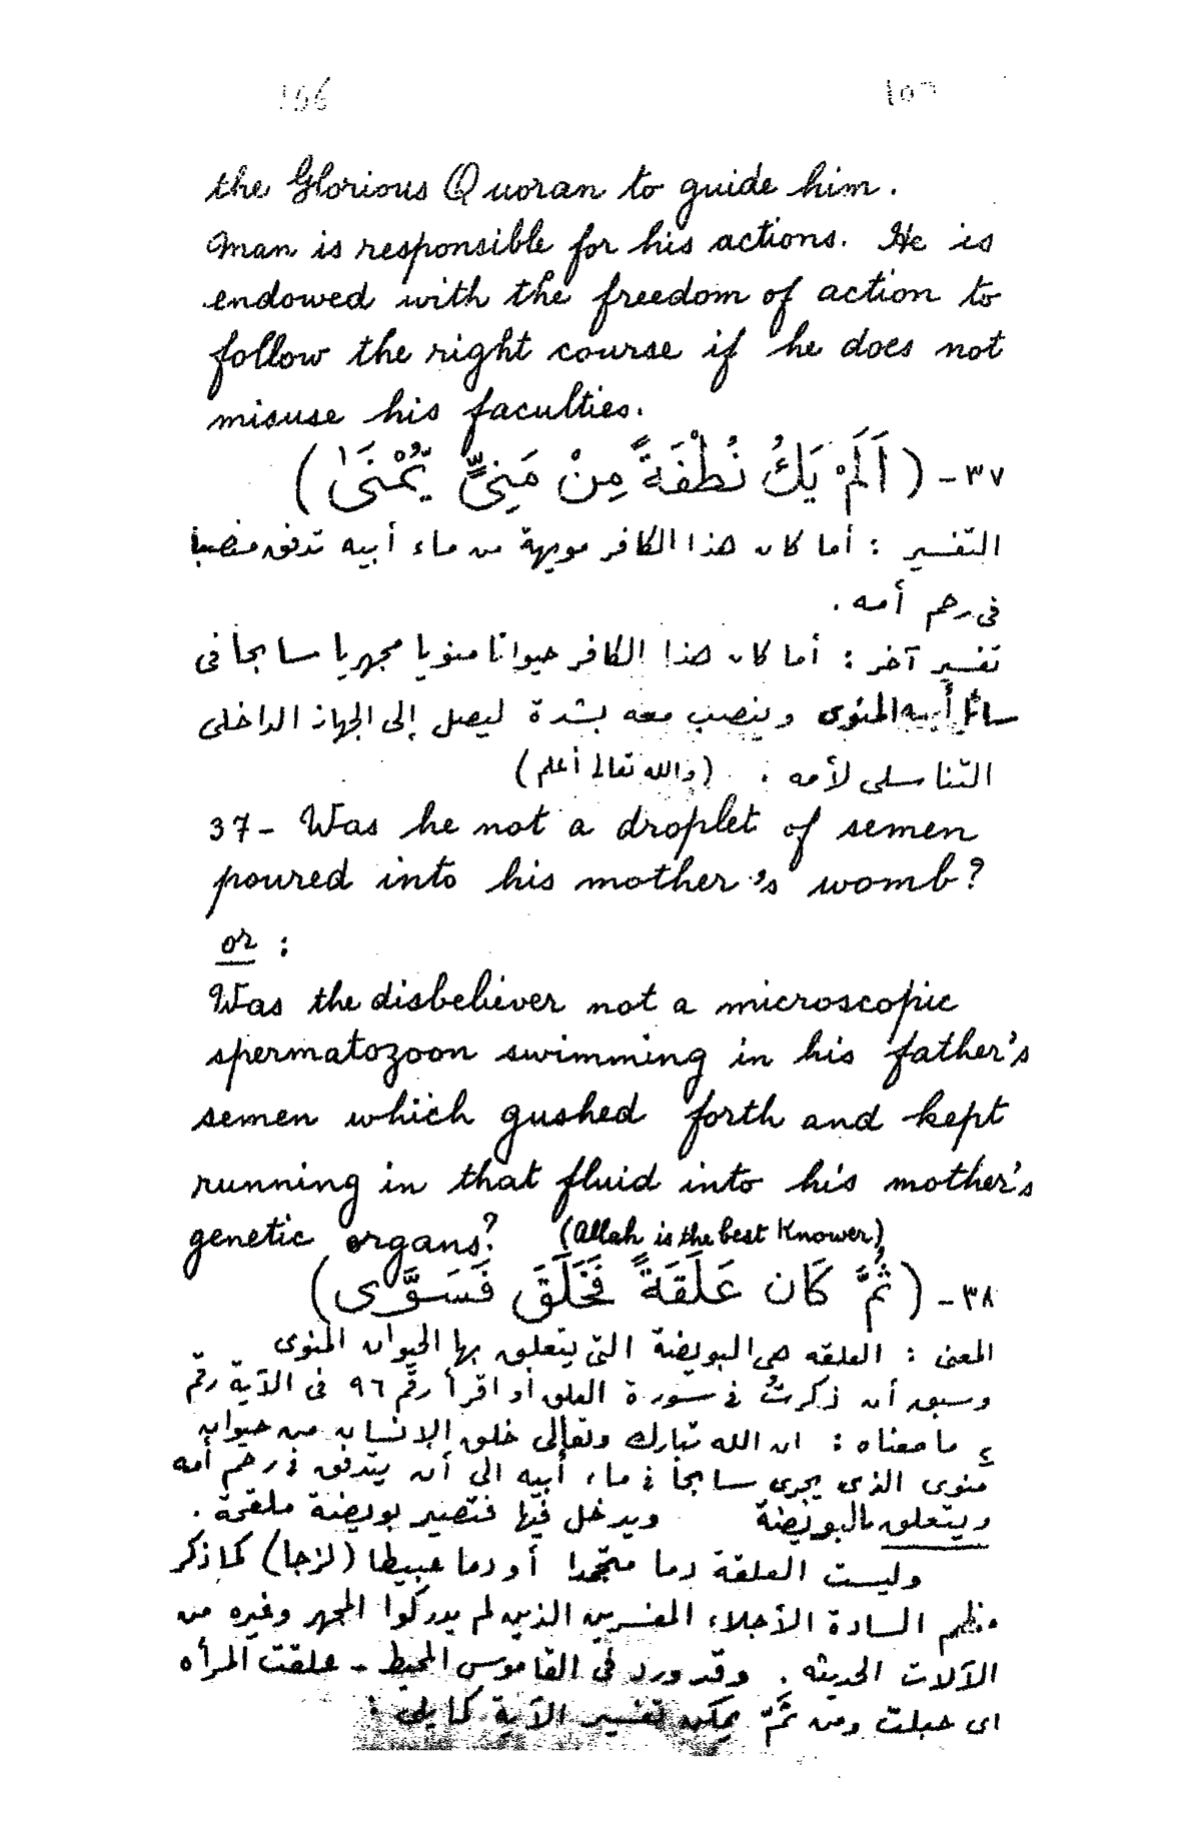 156 ١٥٦
the Glorious Quoran to guide him.
Man is responsible for his actions. He is
endowed with the freedom of action to
follow the right course if he does not
misuse his faculties.
٣٧- (اَلَمْ يَكُ نُطْفَةً مِنْ مَنِىٍّ يُّمْنَىٰ)
التفسير : أما كان هذا الكافر مويهة من ماء أبيه تدفق منصبا
فى رحم أمه .
تفسير آخر : أما كان هذا الكافر حيوانا منويا مجهريا سابحا فى
سائل أبيه المنوى وينصب معه بشدة ليصل إلى الجهاز الداخلى
التناسلى لأمه . (والله تعالى أعلم)
37- Was he not a droplet of semen
poured into his mother's womb?
or :
Was the disbeliever not a microscopic
spermatozoon swimming in his father's
semen which gushed forth and kept
running in that fluid into his mother's
genetic organs? (Allah is the best Knower)
٣٨- (ثُمَّ كَان عَلَقَةً فَخَلَقَ فَسَوَّى)
المعنى : العلقه هى البويضة التى يتعلق بها الحيوان المنوى
وسبق أن ذكرتُ فى سورة العلق أو اقرأ رقم ٩٦ فى الآية رقم
٤ ما معناه : ان الله تبارك وتعالى خلق الإنسان من حيوان
منوى الذى يجرى سابحا فى ماء أبيه الى أن يتدفق فى رحم أمه
ويتعلق بالبويضة ويدخل فيها فتصير بويضة ملقحة .
وليست العلقة دما متجمدا أو دما عبيطا (لزجا) كما ذكر
السادة الأجلاء المفسرين الذين لم يدركوا المجهر وغيره من
الآلات الحديثه . وقد ورد فى القاموس المحيط - علقت المرأه
اى حبلت ومن ثَمَّ يمكن تفسير الآية كما يلى :